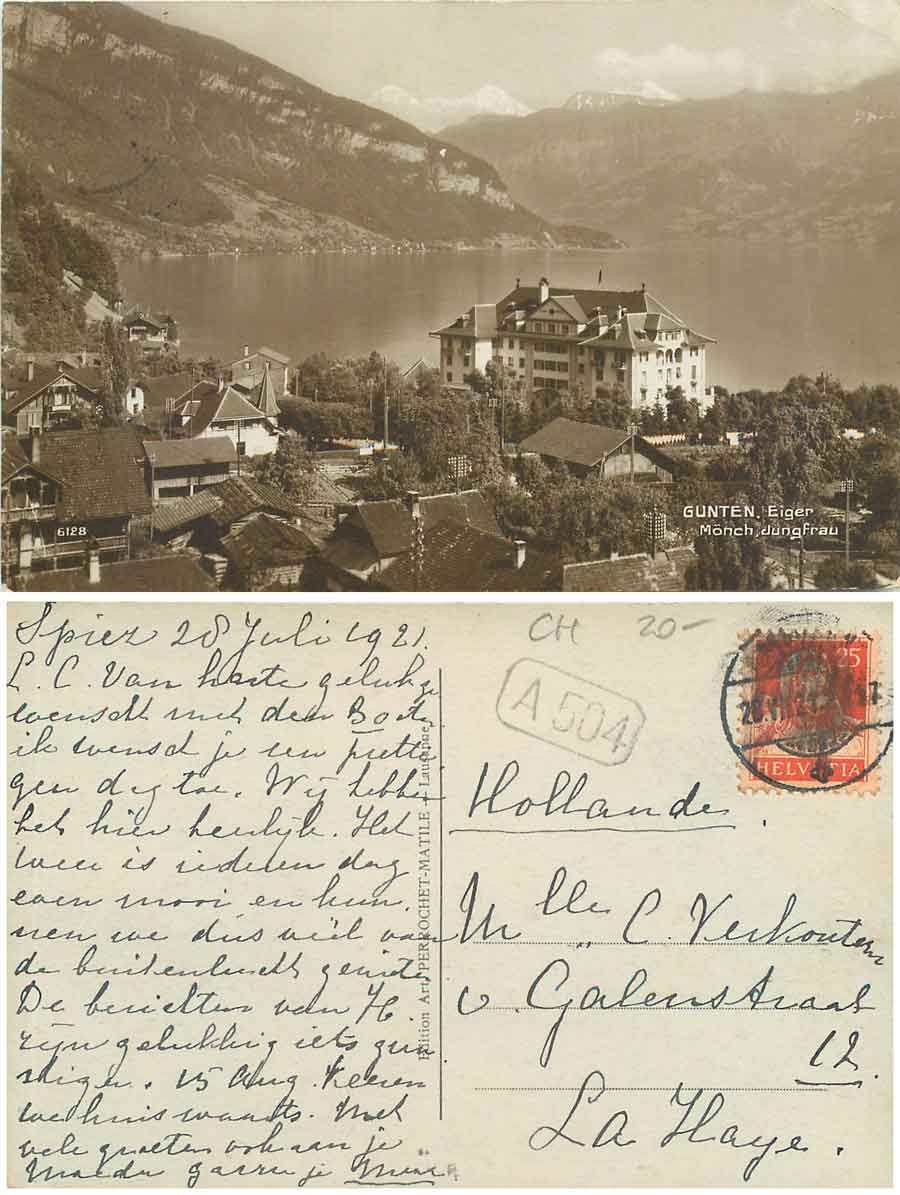 6128
GUNTEN, Eiger
Mönch, Jungfrau
Spiez 28 Juli 1921.
L. C. Van harte geluk
wenscht met den
ik wensch je een pretti
gen dag toe. Wij hebben
het hier heerlijk. Het
weer is iederen dag
even mooi en kun
nen we dus veel van
de buitenlucht genieten
De berichten van H.
zijn gelukkig iets gun
stiger. 15 Aug. keeren
we huiswaarts. Met
vele groeten ook aan je
Moeder gaarne je
Edition Art. PERROCHET-MATILE - Lausanne
CH 20-
A 504
25
HELVETIA
Hollande.
Mlle C. Verkouteren
v. Galenstraat
12.
La Haye.